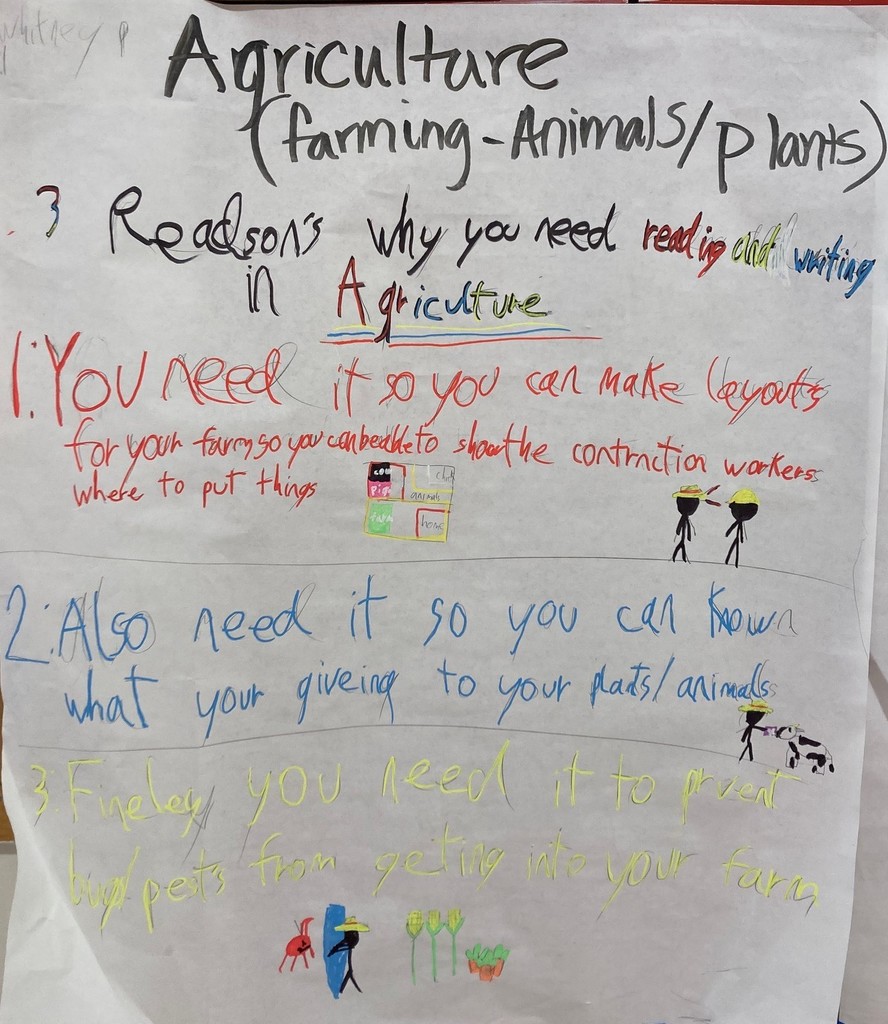 Whitney P
Agriculture
(farming-Animals/plants)
3 Readson's why you need reading and writing
in Agriculture
1:You need it so you can make leyouts
for your farm so you can be able to show the contrnction workers
where to put things
cow
pigs
animals
farm
home
2:Also need it so you can known
what your giveing to your plants/animals
3:Fineley you need it to prvent
bugs/pests from geting into your farm